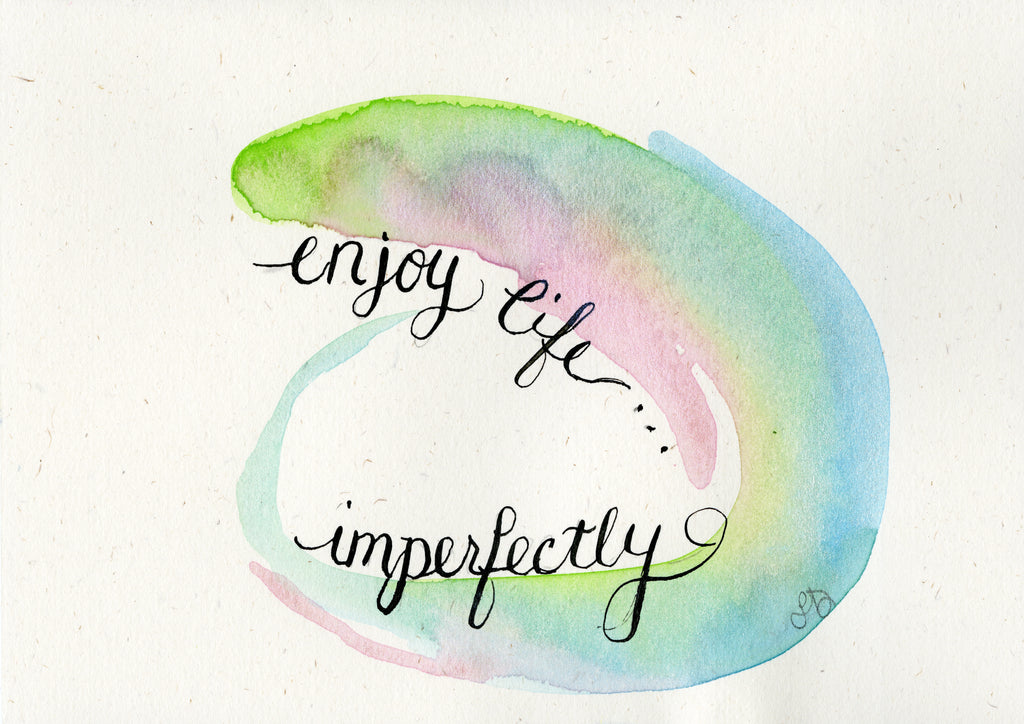 enjoy life...
imperfectly